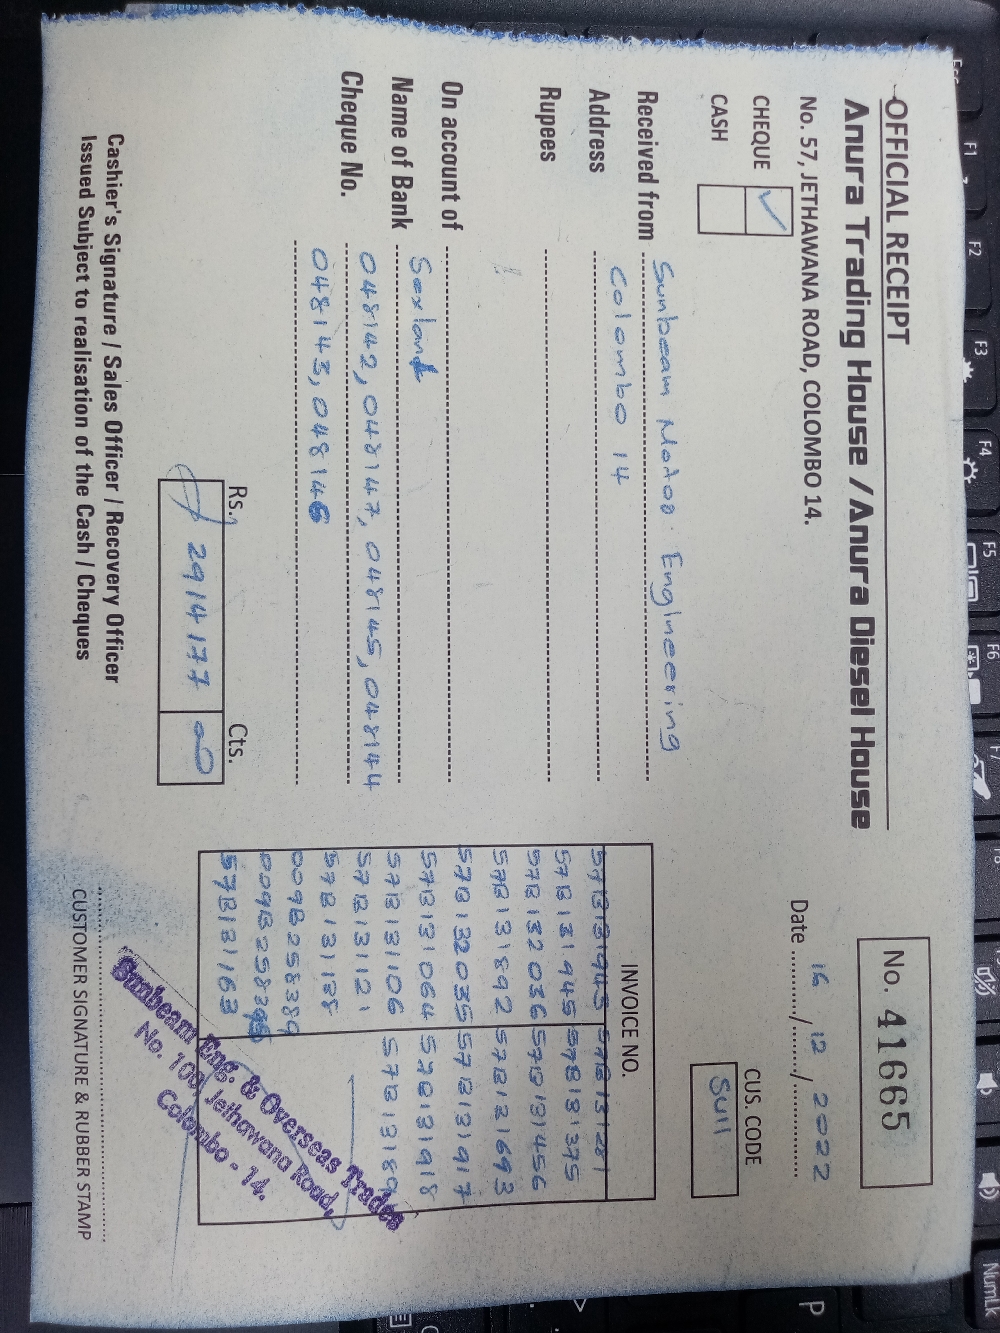 OFFICIAL RECEIPT
Anura Trading House / Anura Diesel House
No. 57, JETHAWANA ROAD, COLOMBO 14.
No. 41665
Date 16 / 12 / 2022
CHEQUE ✓
CASH
CUS. CODE
SU11
Received from Sunbeam Motor Engineering
Address Colombo 14
Rupees
On account of
Name of Bank Seylan
Cheque No. 048142, 048147, 048145, 048144
048143, 048146
INVOICE NO.
57B131943 57B131281
57B131945 57B131375
57B132036 57B131456
57B131892 57B121693
57B132035 57B131917
57B131064 57B131918
57B131106 57B13189
57B131121
57B131138
009B258389
009B258395
57B131163
Rs. Cts.
2914177 00
Cashier's Signature / Sales Officer / Recovery Officer
Issued Subject to realisation of the Cash / Cheques
Sunbeam Eng. & Overseas Trades
No. 100, Jethawana Road,
Colombo - 14.
CUSTOMER SIGNATURE & RUBBER STAMP
Esc
F1
F2
F3
F4
F5
F6
F7
F8
NumLk
P